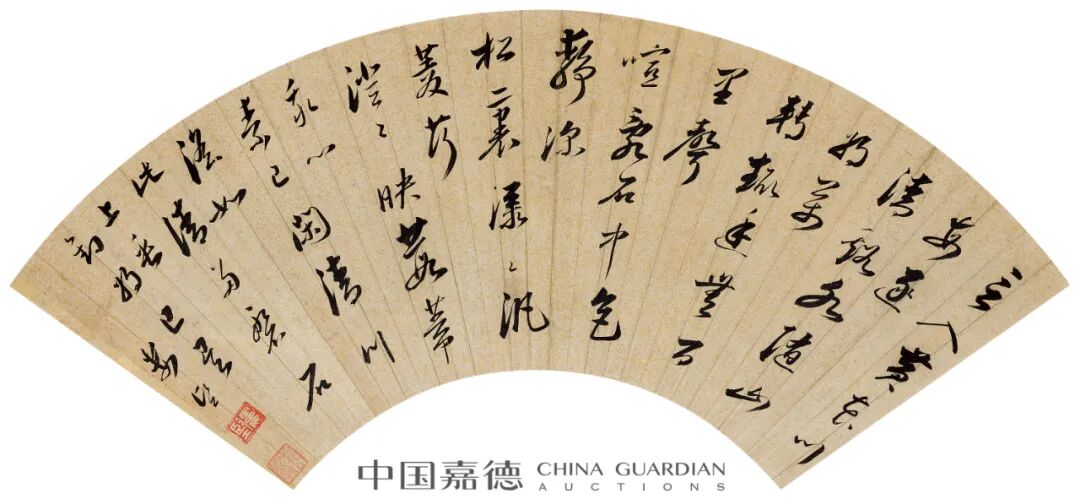 言入黃花川
每逐
清谿水隨山
將萬
轉趣途無百
里聲
喧亂石中色
靜深
松裏漾漾汎
菱荇
澄澄映葭葦
我心
素已閑清川
澹如
此請留盤石
上垂
釣將已矣
中国嘉德 CHINA GUARDIAN
AUCTIONS